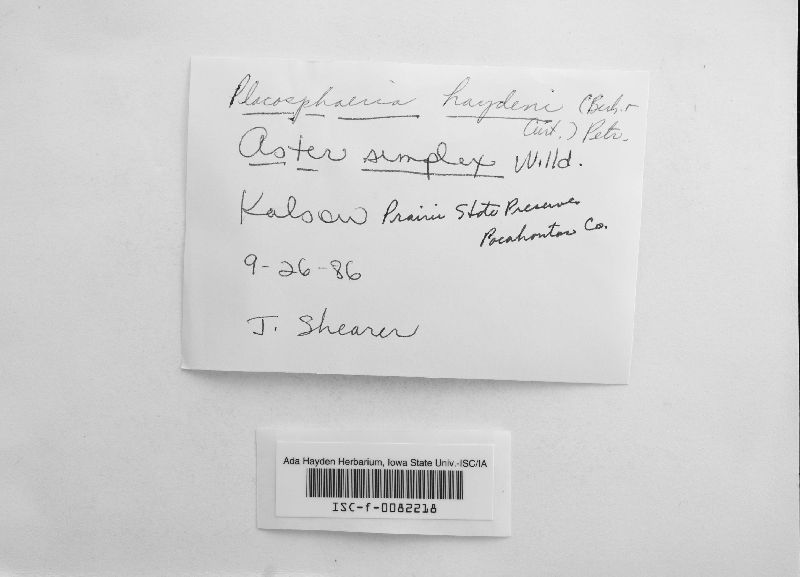 Placosphaeria haydeni (Berk. &
Curt.) Petr.
Aster simplex Willd.
Kalsow Prairie State Preserve
Pocahontas Co.
9-26-86
J. Shearer
Ada Hayden Herbarium, Iowa State Univ.-ISC/IA
ISC-f-0082218